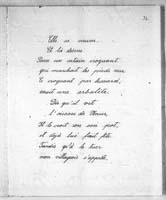 Elle se mourra.
Et là dessus
Dans un certain croquant
qui marchait les pieds nus
Ce croquant par hasard,
avait une arbalète.
Dès qu'il voit
l'oiseau de Vénus
Il le croit en son pot,
et déjà lui fait fête.
Tandis qu'à le tuer
mon villageois s'apprête,